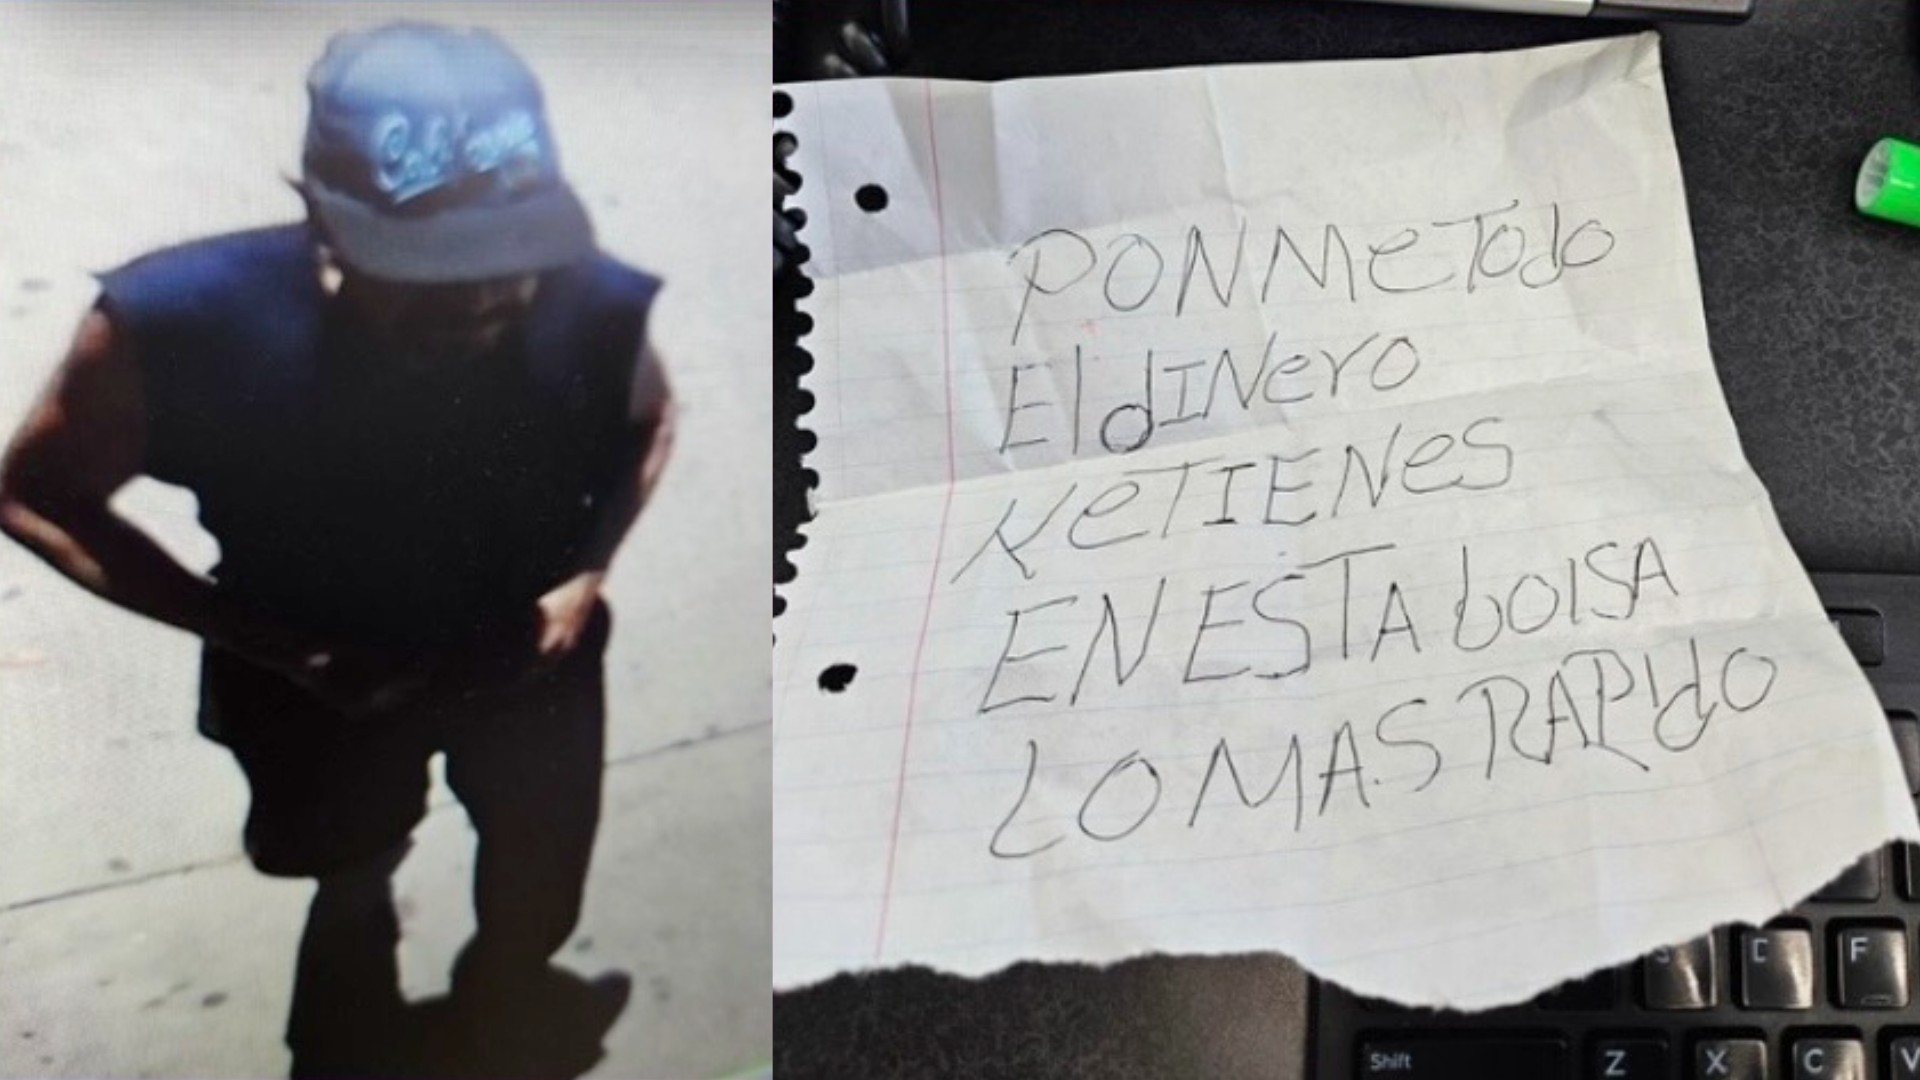 PONMeTodo
El dINero
KeTIENes
EN ESTA bolSA
LO MAS RAPIdO
Shift
Z
X
C
V
D
F